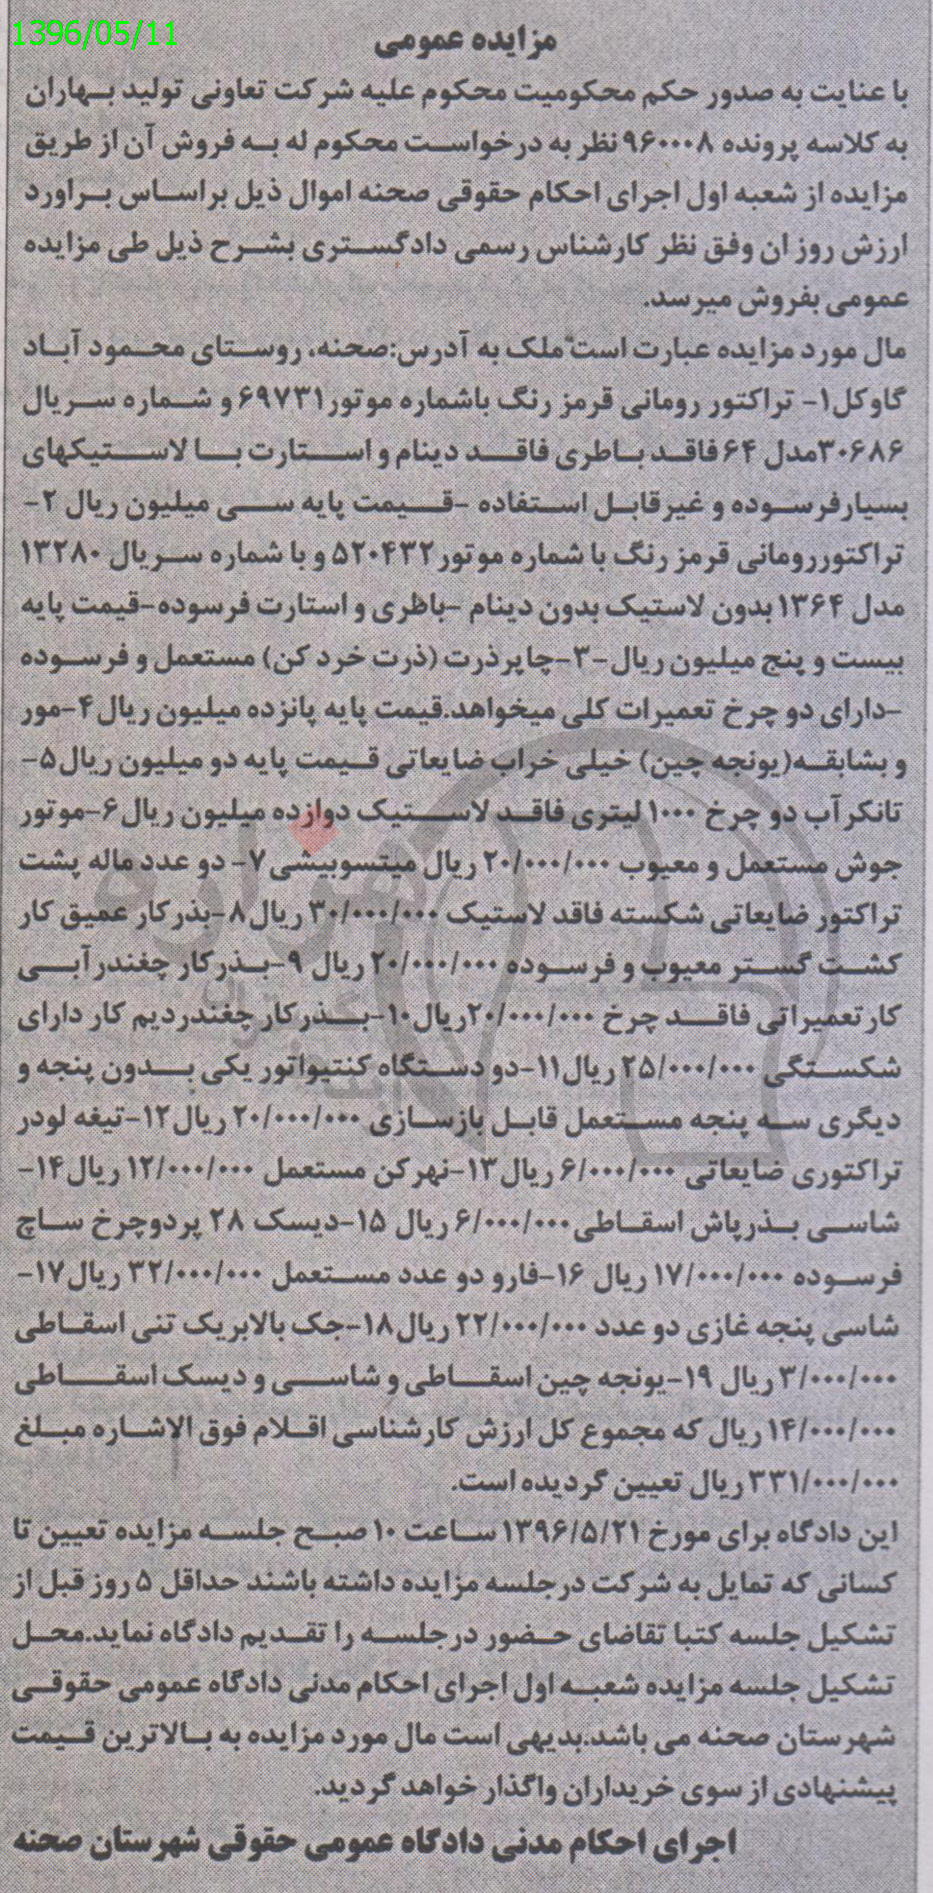 1396/05/11
مزایده عمومی
با عنایت به صدور حکم محکومیت محکوم علیه شرکت تعاونی تولید بهاران
به کلاسه پرونده ۹۶۰۰۰۸ نظر به درخواست محکوم له به فروش آن از طریق
مزایده از شعبه اول اجرای احکام حقوقی صحنه اموال ذیل براساس براورد
ارزش روز ان وفق نظر کارشناس رسمی دادگستری بشرح ذیل طی مزایده
عمومی بفروش میرسد.
مال مورد مزایده عبارت است ملک به آدرس:صحنه، روستای محمود آباد
گاوکل۱- تراکتور رومانی قرمز رنگ باشماره موتور۶۹۷۳۱ و شماره سریال
۳۰۶۸۶مدل ۶۴ فاقد باطری فاقد دینام و استارت با لاستیکهای
بسیارفرسوده و غیرقابل استفاده -قیمت پایه سی میلیون ریال ۲-
تراکتوررومانی قرمز رنگ با شماره موتور۵۲۰۴۳۲ و با شماره سریال ۱۳۲۸۰
مدل ۱۳۶۴ بدون لاستیک بدون دینام -باظری و استارت فرسوده-قیمت پایه
بیست و پنج میلیون ریال-۳-چاپرذرت (ذرت خرد کن) مستعمل و فرسوده
-دارای دو چرخ تعمیرات کلی میخواهد.قیمت پایه پانزده میلیون ریال۴-مور
و بشابقه(یونجه چین) خیلی خراب ضایعاتی قیمت پایه دو میلیون ریال۵-
تانکرآب دو چرخ ۱۰۰۰ لیتری فاقد لاستیک دوازده میلیون ریال۶-موتور
جوش مستعمل و معیوب ۲۰/۰۰۰/۰۰۰ ریال میتسوبیشی۷- دو عدد ماله پشت
تراکتور ضایعاتی شکسته فاقد لاستیک ۳۰/۰۰۰/۰۰۰ ریال۸-بذرکار عمیق کار
کشت گستر معیوب و فرسوده ۲۰/۰۰۰/۰۰۰ ریال ۹-بذرکار چغندرآبی
کارتعمیراتی فاقد چرخ ۲۰/۰۰۰/۰۰۰ریال۱۰-بذرکارچغندردیم کار دارای
شکستگی ۲۵/۰۰۰/۰۰۰ ریال۱۱-دو دستگاه کنتیواتور یکی بدون پنجه و
دیگری سه پنجه مستعمل قابل بازسازی ۲۰/۰۰۰/۰۰۰ ریال۱۲-تیغه لودر
تراکتوری ضایعاتی ۶/۰۰۰/۰۰۰ ریال۱۳-نهرکن مستعمل ۱۲/۰۰۰/۰۰۰ ریال۱۴-
شاسی بذرپاش اسقاطی۶/۰۰۰/۰۰۰ ریال ۱۵-دیسک ۲۸ پردوچرخ ساچ
فرسوده ۱۷/۰۰۰/۰۰۰ ریال ۱۶-فارو دو عدد مستعمل ۳۲/۰۰۰/۰۰۰ ریال۱۷-
شاسی پنجه غازی دو عدد ۲۲/۰۰۰/۰۰۰ ریال۱۸-جک بالابریک تنی اسقاطی
۳/۰۰۰/۰۰۰ ریال ۱۹-یونجه چین اسقاطی و شاسی و دیسک اسقاطی
۱۴/۰۰۰/۰۰۰ ریال که مجموع کل ارزش کارشناسی اقلام فوق الاشاره مبلغ
۳۳۱/۰۰۰/۰۰۰ ریال تعیین گردیده است.
این دادگاه برای مورخ ۱۳۹۶/۵/۲۱ ساعت ۱۰ صبح جلسه مزایده تعیین تا
کسانی که تمایل به شرکت درجلسه مزایده داشته باشند حداقل ۵ روز قبل از
تشکیل جلسه کتبا تقاضای حضور درجلسه را تقدیم دادگاه نماید.محل
تشکیل جلسه مزایده شعبه اول اجرای احکام مدنی دادگاه عمومی حقوقی
شهرستان صحنه می باشد.بدیهی است مال مورد مزایده به بالاترین قیمت
پیشنهادی از سوی خریداران واگذار خواهد گردید.
اجرای احکام مدنی دادگاه عمومی حقوقی شهرستان صحنه